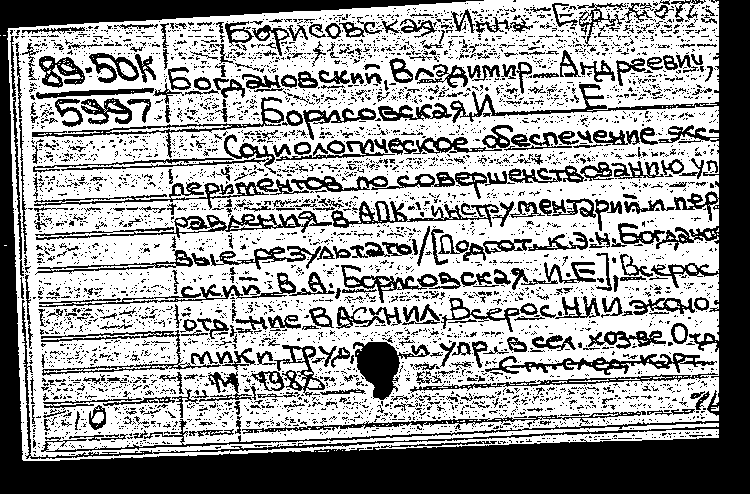 Борисовская, Инна
89-50К
5997
Богдановский, Владимир Андреевич,
Борисовская, И Е
Социологическое обеспечение экс-
периментов по совершенствованию уп
равления в АПК: инструментарий и пер
вые результаты/[Подгот. к.э.н. Богданов
ский В.А., Борисовская И.Е.]; Всерос.
отд-ние ВАСХНИЛ, Всерос. НИИ эконо-
мики, труда и упр. в сел. хоз-ве. Отд.
См. след. карт.
М., 1988
10